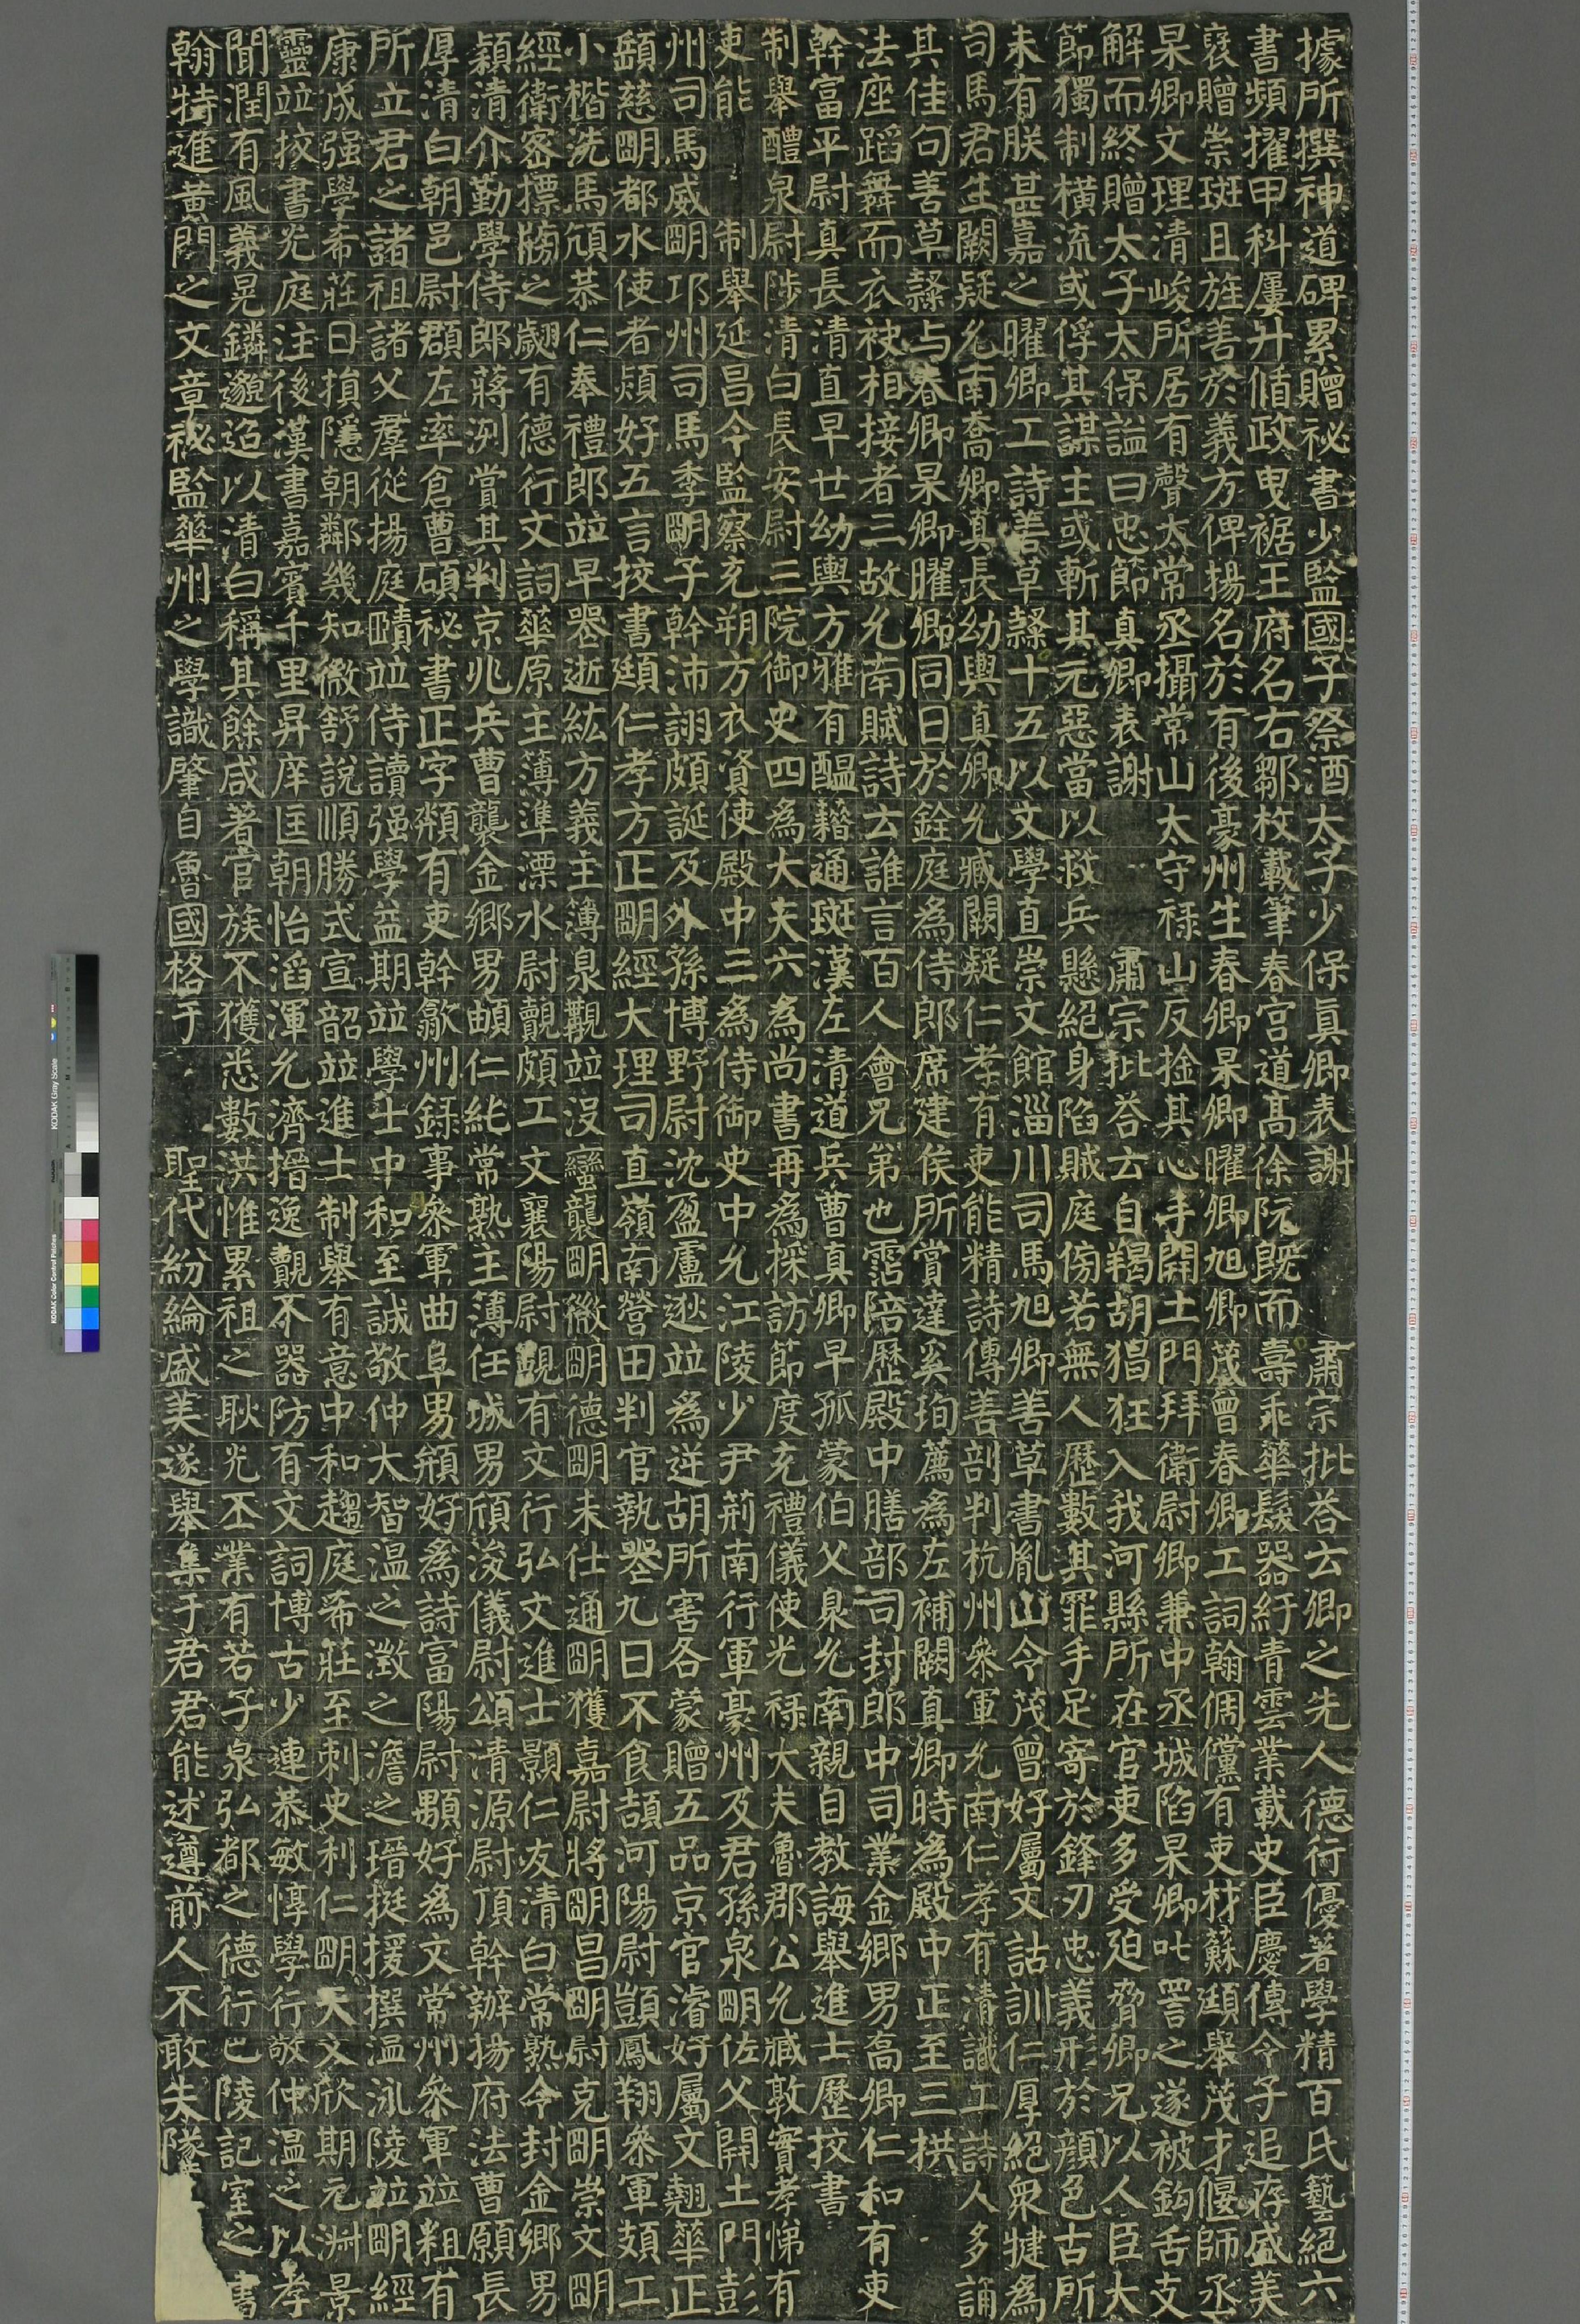 據所撰神道碑累贈祕書少監國子祭酒太子少保真卿表謝 肅宗批荅云卿之先人德行優著學精百氏藝絕六
書頻擢甲科屢升循政曳裾王府名右鄒枚載筆春宮道高徐阮既而壽乖華髮器紆青雲業載史臣慶傳令子追存盛美
襃贈崇斑且旌善於義方俾揚名於有後豪州生春卿杲卿曜卿旭卿茂曾春卿工詞翰倜儻有吏材蘇頲舉茂才偃師丞
杲卿文理清峻所居有聲太常丞攝常山太守祿山反捡其心手開土門拜衛尉卿兼中丞城陷杲卿叱詈之遂被鈎舌支
解而終贈太子太保謚曰忠節真卿表謝 肅宗批荅云自羯胡猖狂入我河縣所在官吏多受迫脅卿兄以人臣大
節獨制橫流或俘其謀主或斬其元惡當以救兵懸絕身陷賊庭傍若無人歷數其罪手足寄於鋒刃忠義形於顏色古所
未有朕甚嘉之曜卿工詩善草隸十五以文學直崇文館淄川司馬旭卿善草書胤山令茂曾好屬文詁訓仁厚絕衆犍為
司馬君生闕疑允南喬卿真長幼輿真卿允臧闕疑仁孝有吏能精詩傳善剖判杭州參軍允南仁孝有清識工詩人多誦
其佳句善草隸与春卿杲卿曜卿同日於銓庭為侍郎席建侯所賞達奚珣薦為左補闕真卿時為殿中正至三拱
法座蹈舞而衣袂相接者三故允南賦詩云誰言百人會兄弟也霑陪歷殿中膳部司封郎中司業金鄉男高卿仁和有吏
幹富平尉真長清直早世幼輿方雅有醞藉通斑漢左清道兵曹真卿早孤蒙伯父臮允南親自教誨舉進士歷挍書
制舉醴泉尉陟清白長安尉三院御史四為大夫六為尚書再為採訪節度充禮儀使光祿大夫魯郡公允臧敦實孝悌有
吏能 制舉延昌令監察充朔方衣資使殿中三為侍御史中允江陵少尹荊南行軍豪州及君孫泉明佐父開土門彭
州司馬威明邛州司馬季明子幹沛詡頗誕及外孫博野尉沈盈盧逖並為逆胡所害各蒙贈五品京官濬好屬文翹華正
慈明都水使者熲好五言挍書頲仁孝方正明經大理司直嶺南營田判官執喪九日不食頡河陽尉顗鳳翔參軍頍工
小楷洗馬頎恭仁奉禮郎並早喪逝紘方義主簿泉觀並沒蠻龔明徵明德明未仕通明獲嘉尉將明昌明尉克明崇文明
經衛密摽牓之翽有德行文詞華原主簿準溧水尉覿頗工文襄陽尉覲有文行弘文進士顥仁友清白常熟令封金鄉男
潁清介勤學侍郎蔣洌賞其判京兆兵曹襲金鄉男頔仁純常熟主簿任城男頎浚儀尉頌清源尉頂幹辦揚府法曹願長
厚清白朝邑尉頵左率倉曹碩祕書正字頪有吏幹歙州錄事參軍曲阜男頩好為詩富陽尉顒好為文常州參軍並粗有
所立君之諸祖諸父羣從揚庭賾並侍讀强學益期並學士中和至誠敬仲大智溫之澂之澹之瑨挺援撰溫泳陵並明經
康成强學希莊日損隱朝鄰幾知微舒說順勝式宣韶並進士制舉有意中和趨庭希莊至刺史利仁明天文欣期元淑景
靈並挍書光庭注後漢書嘉賓千里昇庠匡朝怡滔渾允濟㨗逸覿不器防有文詞博古少連恭敏惇學行敬仲溫之以孝
聞潤有風義晃鏻邈迢以清白稱其餘咸著官族不獲悉數洪惟累祖之耿光丕業有若子泉弘都之德行巴陵記室之書
翰特進黃門之文章祕監華州之學識肇自魯國格于 聖代紛綸盛美遂舉集于君君能述遵前人不敢失隊